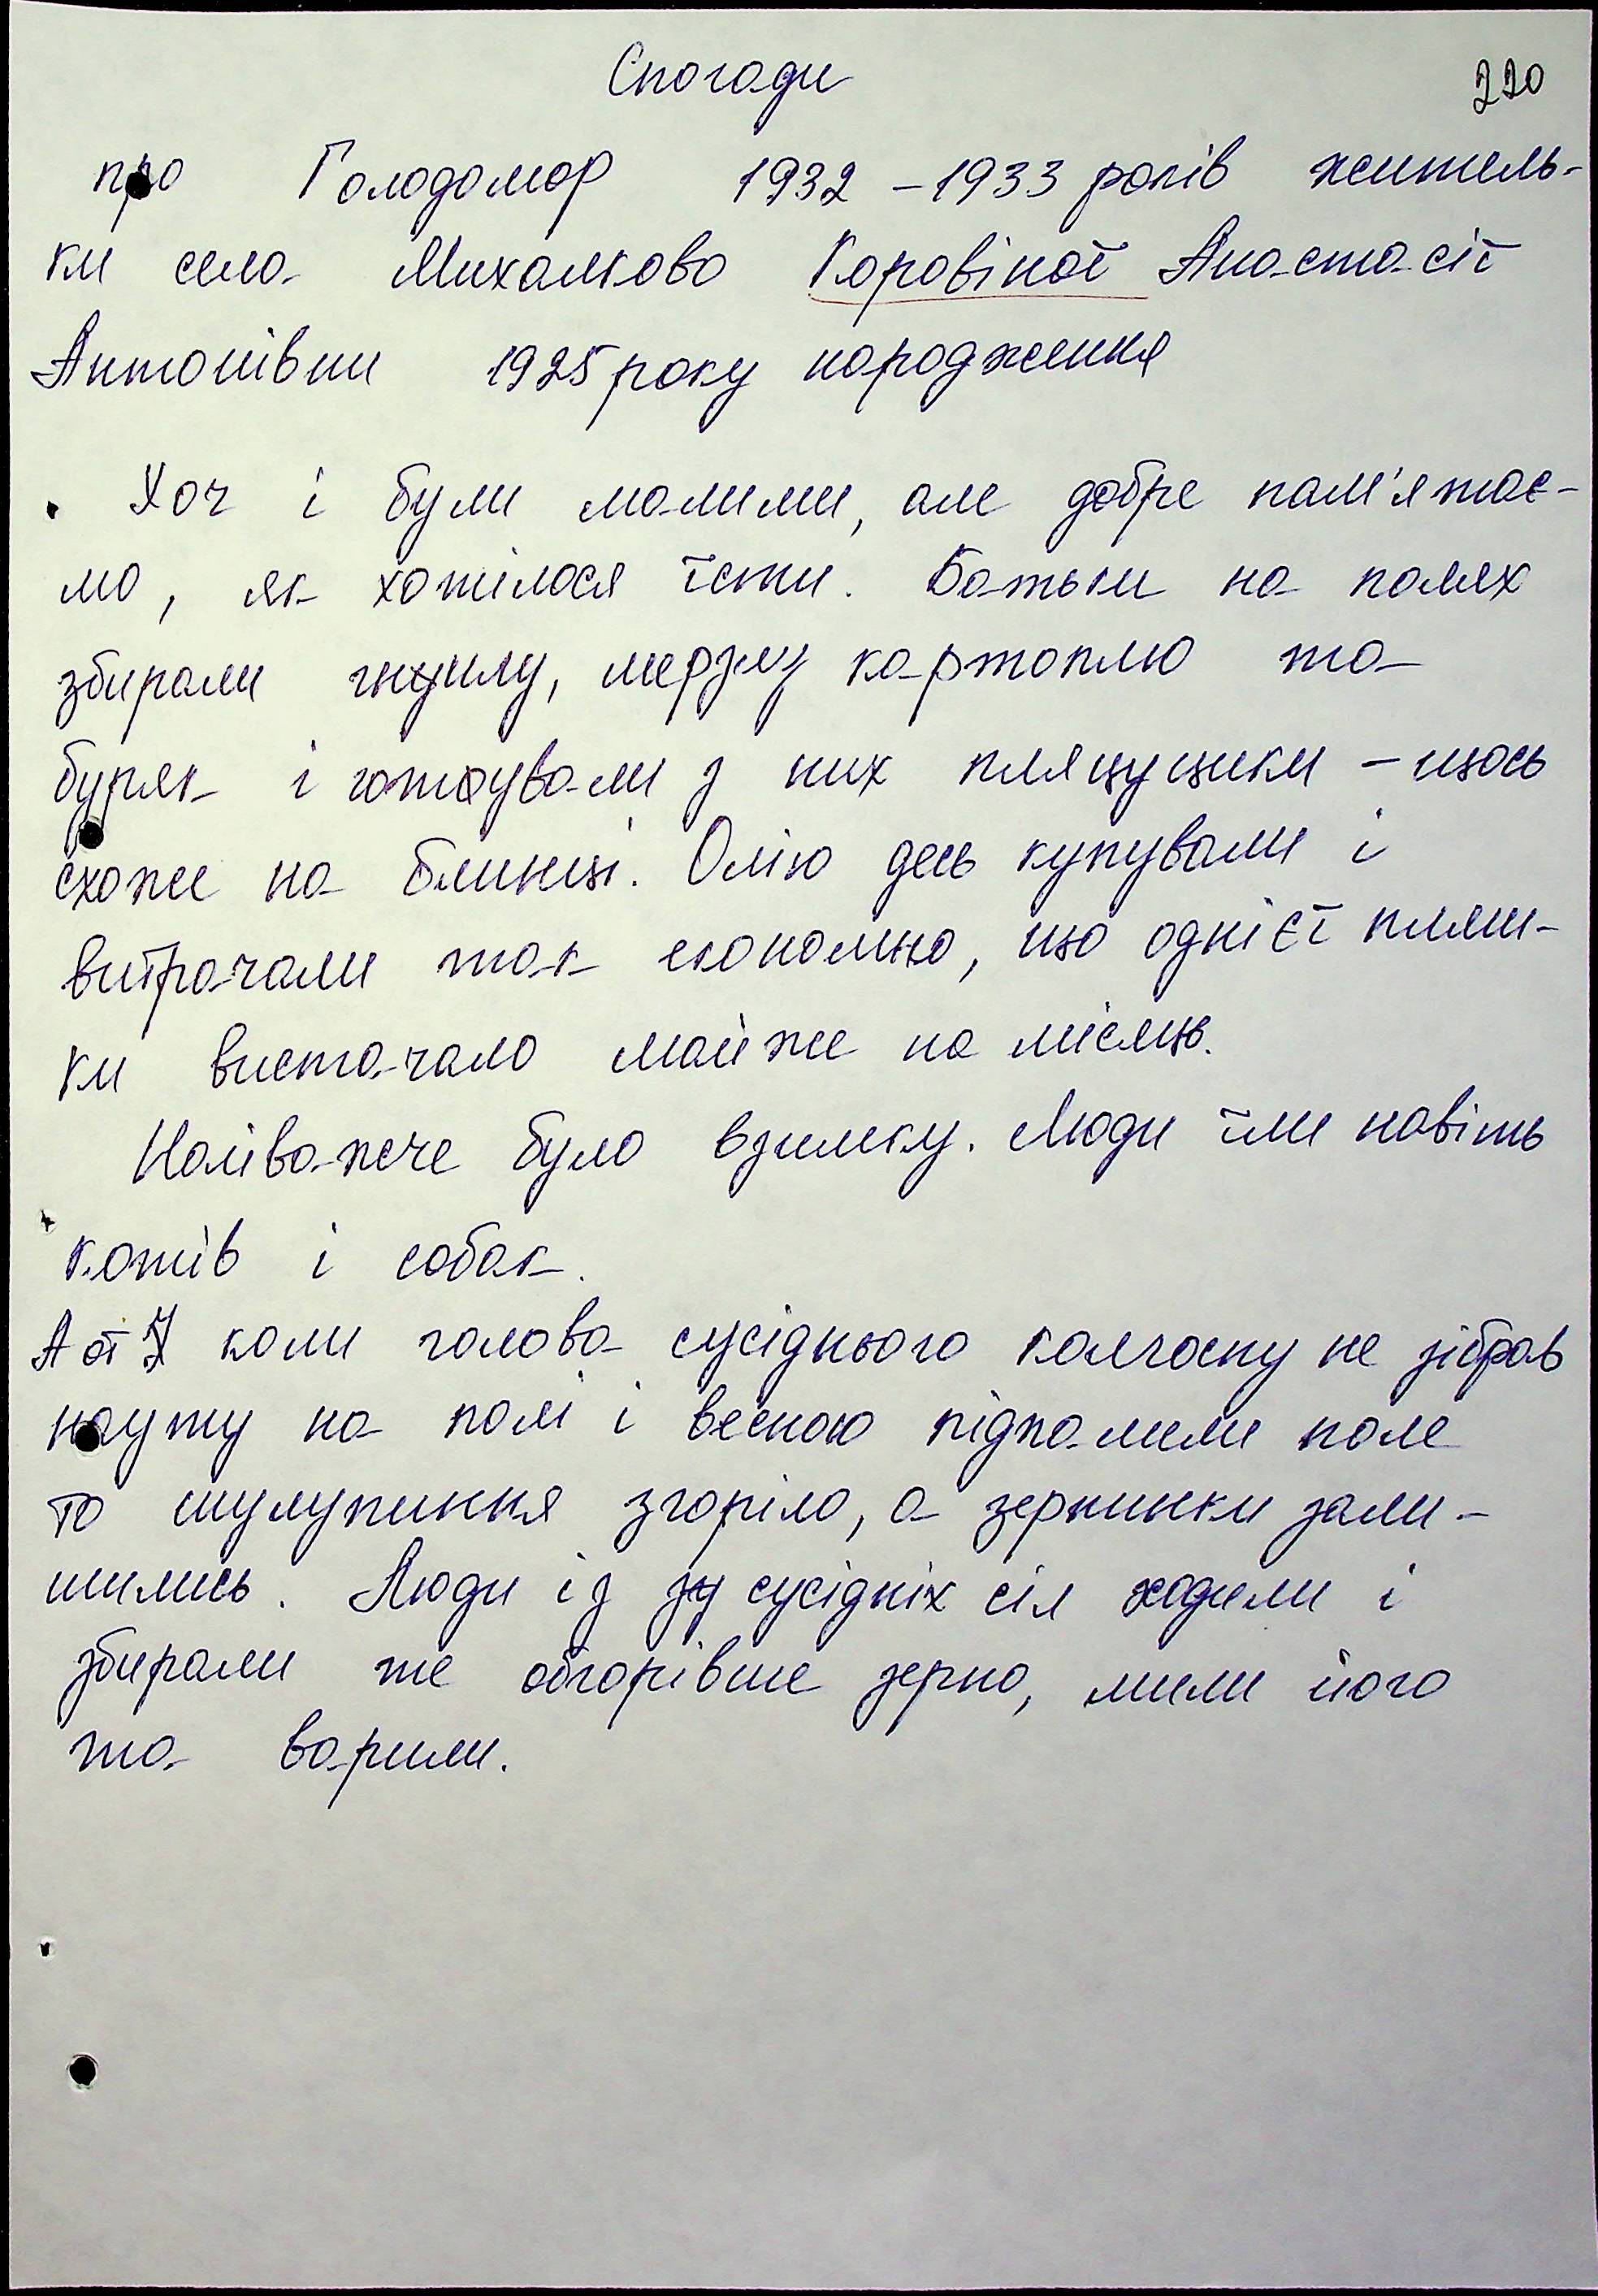 Спогади
220
про Голодомор 1932 – 1933 років житель-
ки села Михалково Коровіної Анастасії
Антонівни 1925 року народження
Хоч і були малими, але добре пам'ятає-
мо, як хотілося їсти. Батьки на полях
збирали гнилу, мерзлу картоплю та
буряк і готували з них пляцущики – щось
схоже на блинці. Олію десь купували і
витрачали так економно, що однієї пляш-
ки вистачало майже на місяць.
Найважче було взимку. Люди їли навіть
котів і собак.
А от коли голова сусіднього колгоспу не зібрав
науту на полі і весною підпалили поле
то шулупиння згоріло, а зернинки зали-
шились. Люди із сусідніх сіл ходили і
збирали те обгорівше зерно, мили його
та варили.